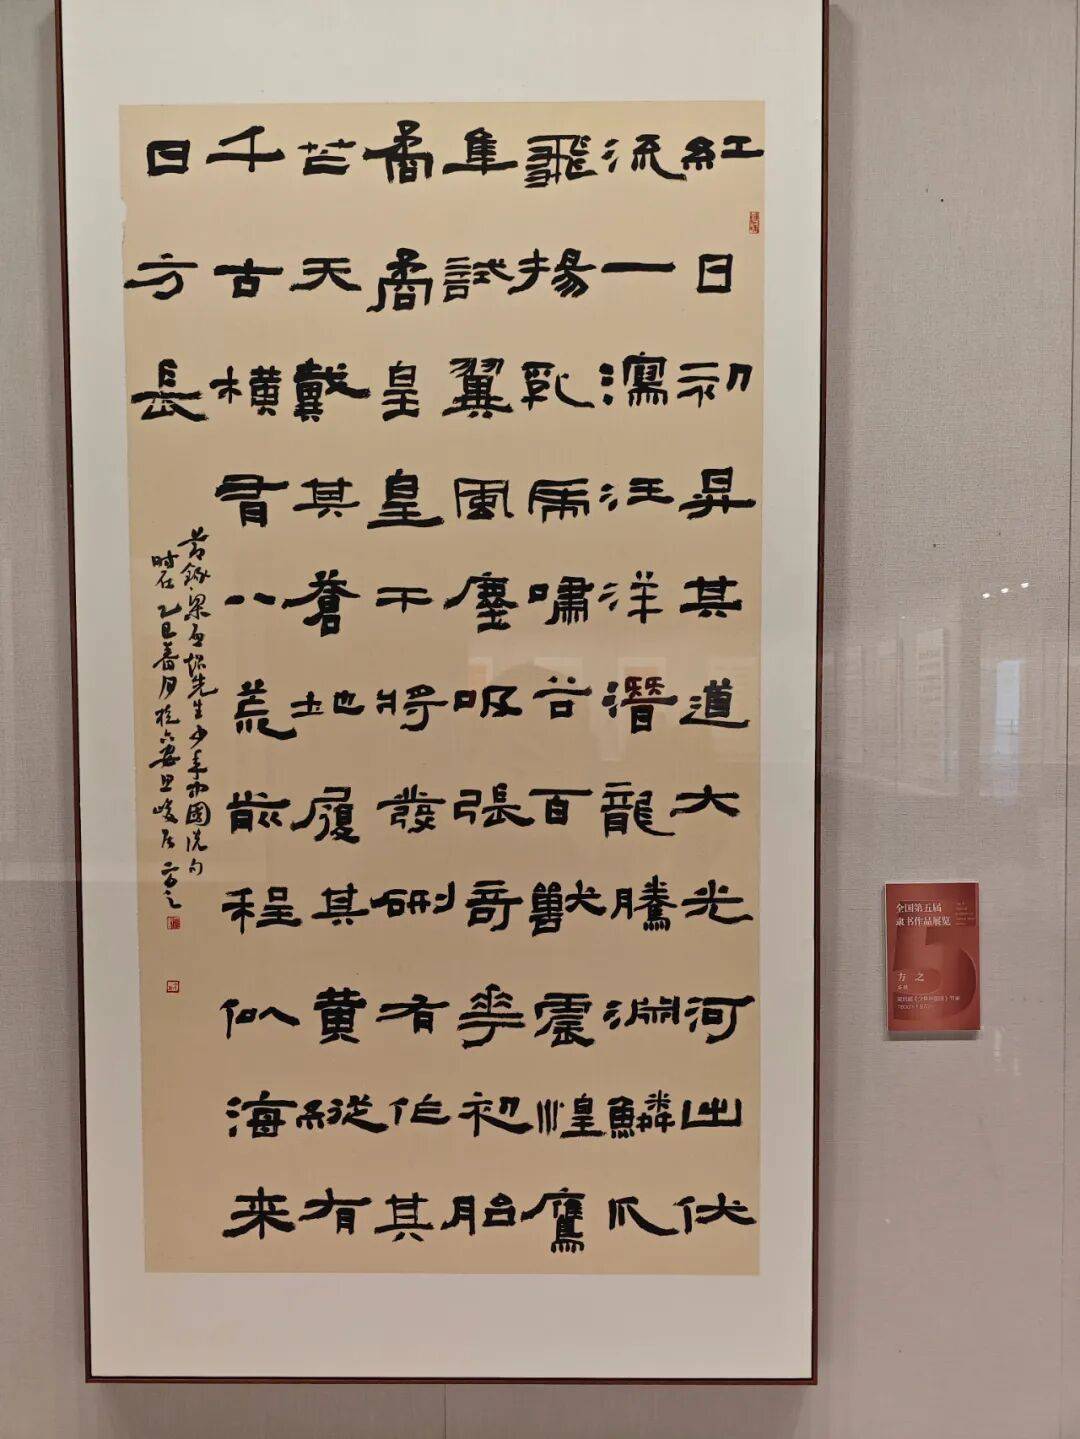 紅日初昇其道大光河出伏
流一瀉汪洋潛龍騰淵鱗爪
飛揚乳虎嘯谷百獸震惶鷹
隼試翼風塵吸張奇華初胎
矞矞皇皇干將發硎有作其
芒天戴其蒼地履其黃縱有
千古橫有八荒前程似海来
日方長
节錄梁启超先生少年中國说句
时在乙巳春月於六安居方之
全国第五届
隶书作品展览
方 之
安徽
梁启超《少年中国说》节录